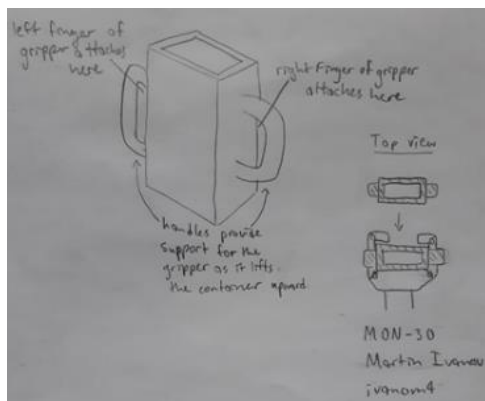 left finger of
gripper attaches
here
right finger of gripper
attaches here
Top view
handles provide
support for the
gripper as it lifts
the container upward.
MON-30
Martin Ivanov
ivanom4